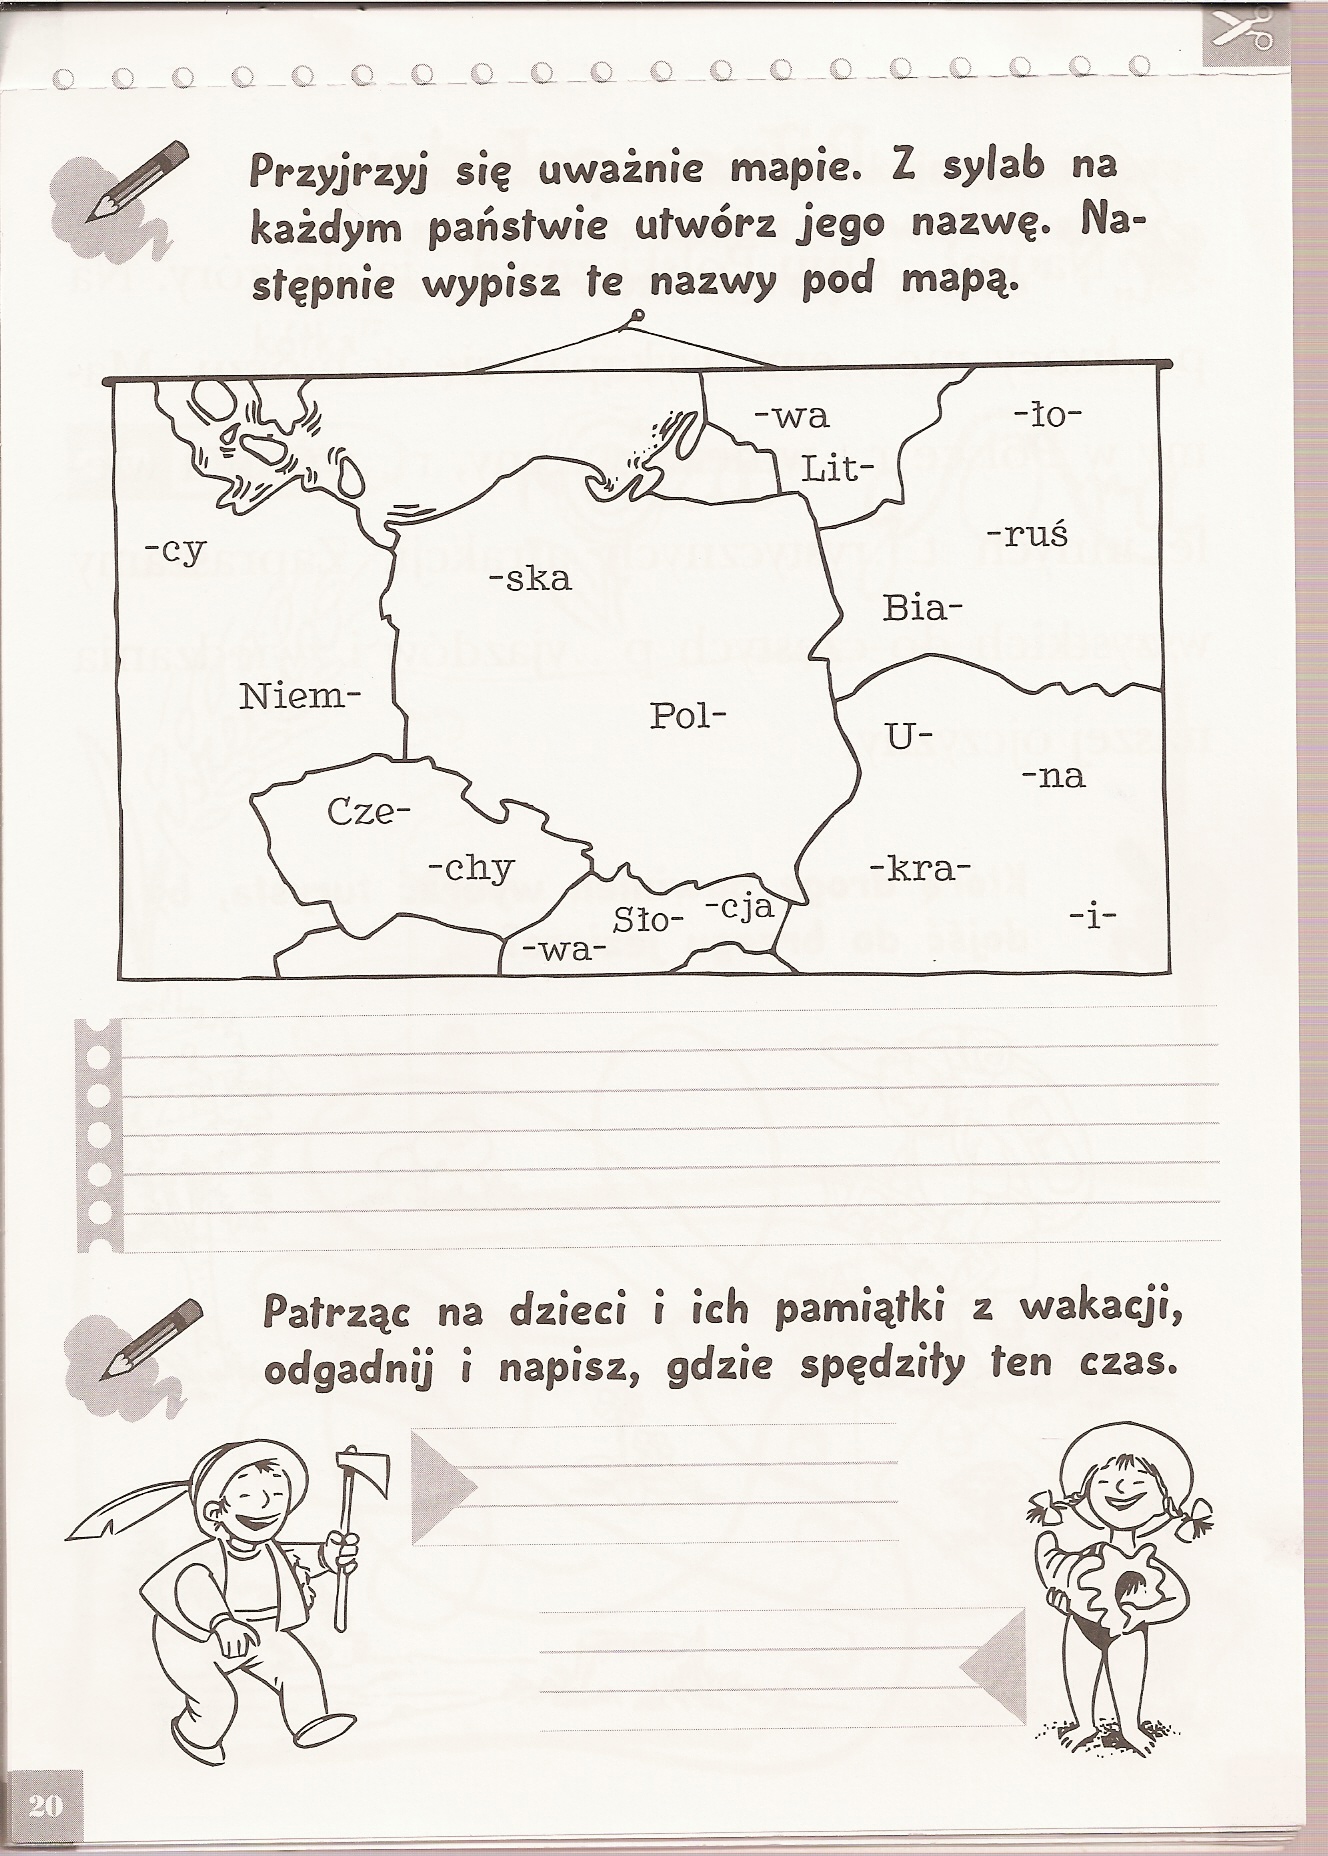 Przyjrzyj się uważnie mapie. Z sylab na
każdym państwie utwórz jego nazwę. Na-
stępnie wypisz te nazwy pod mapą.
-wa
-ło-
Lit-
-cy
-ruś
-ska
Bia-
Niem-
Pol-
U-
-na
Cze-
-chy
-kra-
Sło-
-cja
-i-
-wa-
Patrząc na dzieci i ich pamiątki z wakacji,
odgadnij i napisz, gdzie spędziły ten czas.
20